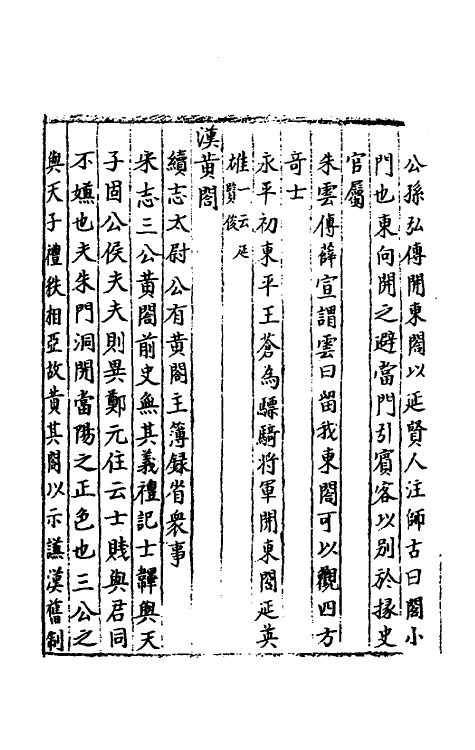 公孫弘傳開東閤以延賢人注師古曰閤小
門也東向開之避當門引賓客以别於掾史
官屬
朱雲傳薛宣謂雲曰留我東閤可以觀四方
竒士
永平初東平王蒼為驃騎將軍開東閤延英
雄一云延賢俊
漢黄閤
續志太尉公有黄閤主簿録省衆事
宋志三公黄閤前史無其義禮記士韠與天
子固公侯夫夫則異鄭元住云士賤與君同
不嫌也夫朱門洞開當陽之正色也三公之
與天子禮秩相亞故黄其閤以示謙漢舊制